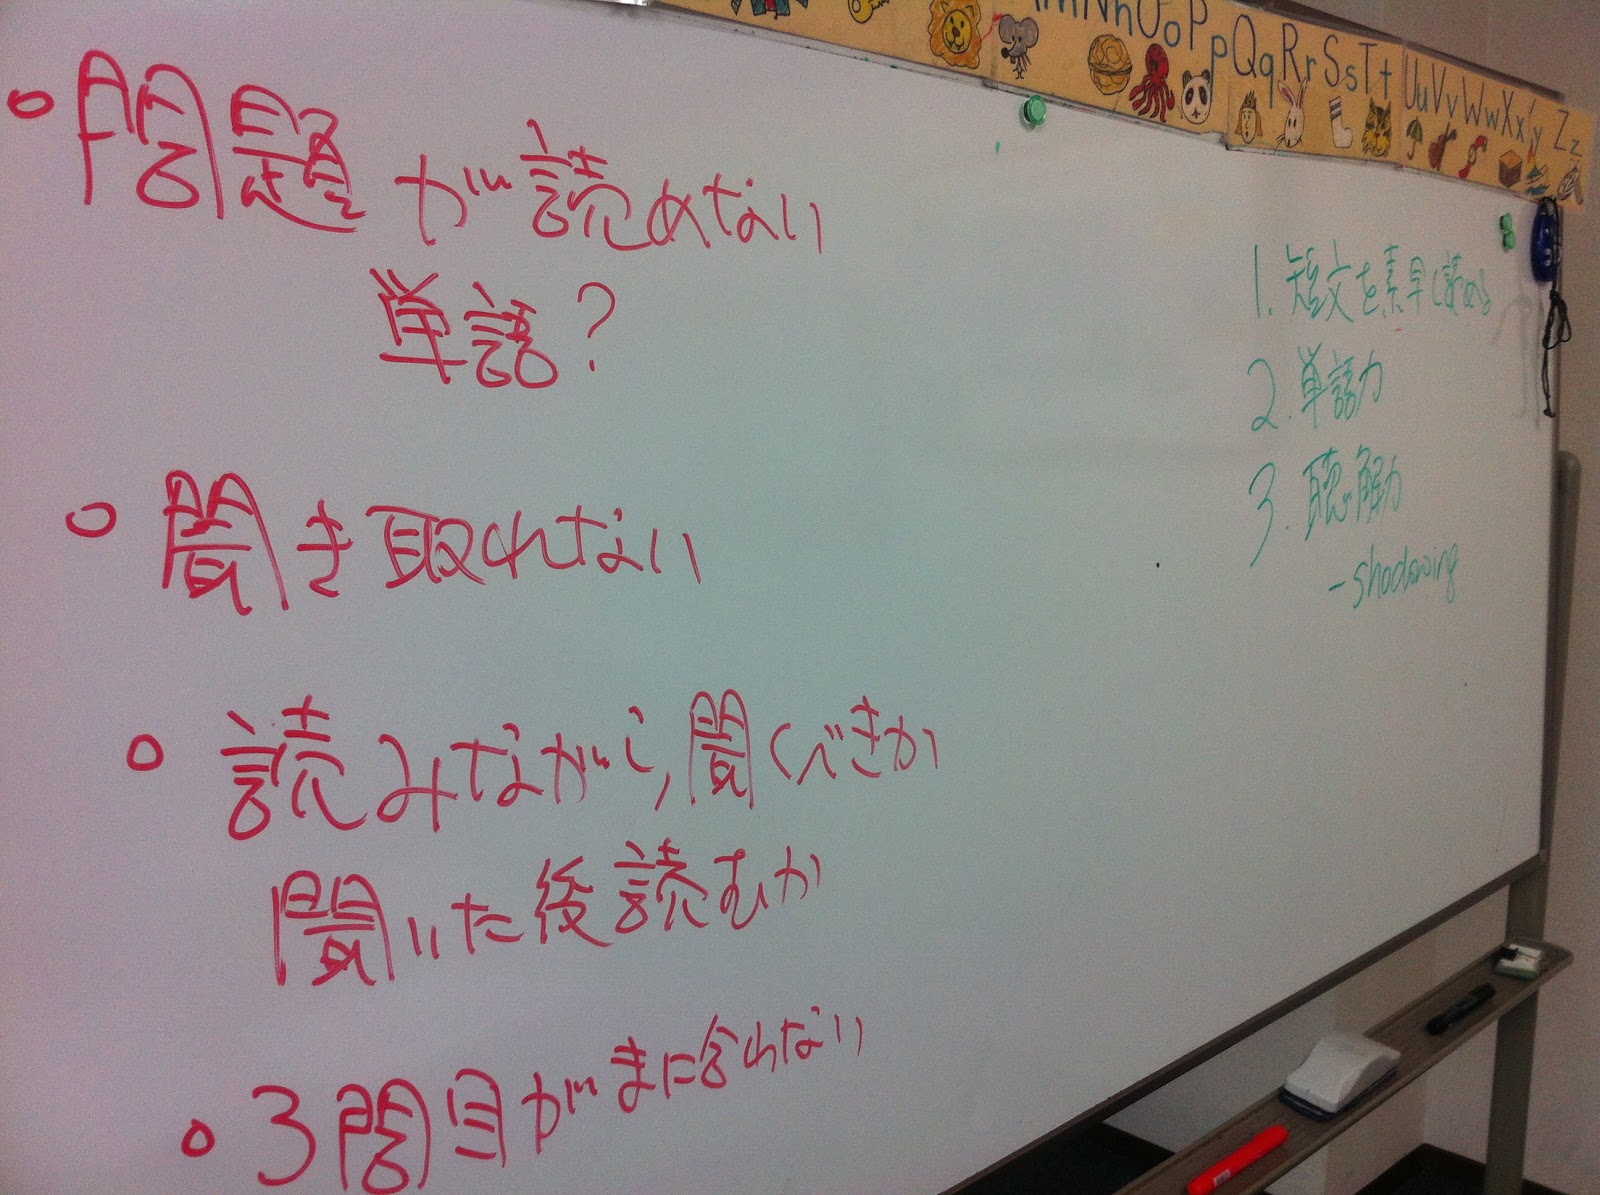 ○問題が読めない
単語?
○聞き取れない
○読みながら,聞くべきか
聞いた後読むか
○3問目がまに合わない
1.短文を素早く読める
2.単語力
3.聴解力
-shadowing
Nn Oo Pp Qq Rr Ss Tt Uu Vv Ww Xx Yy Zz